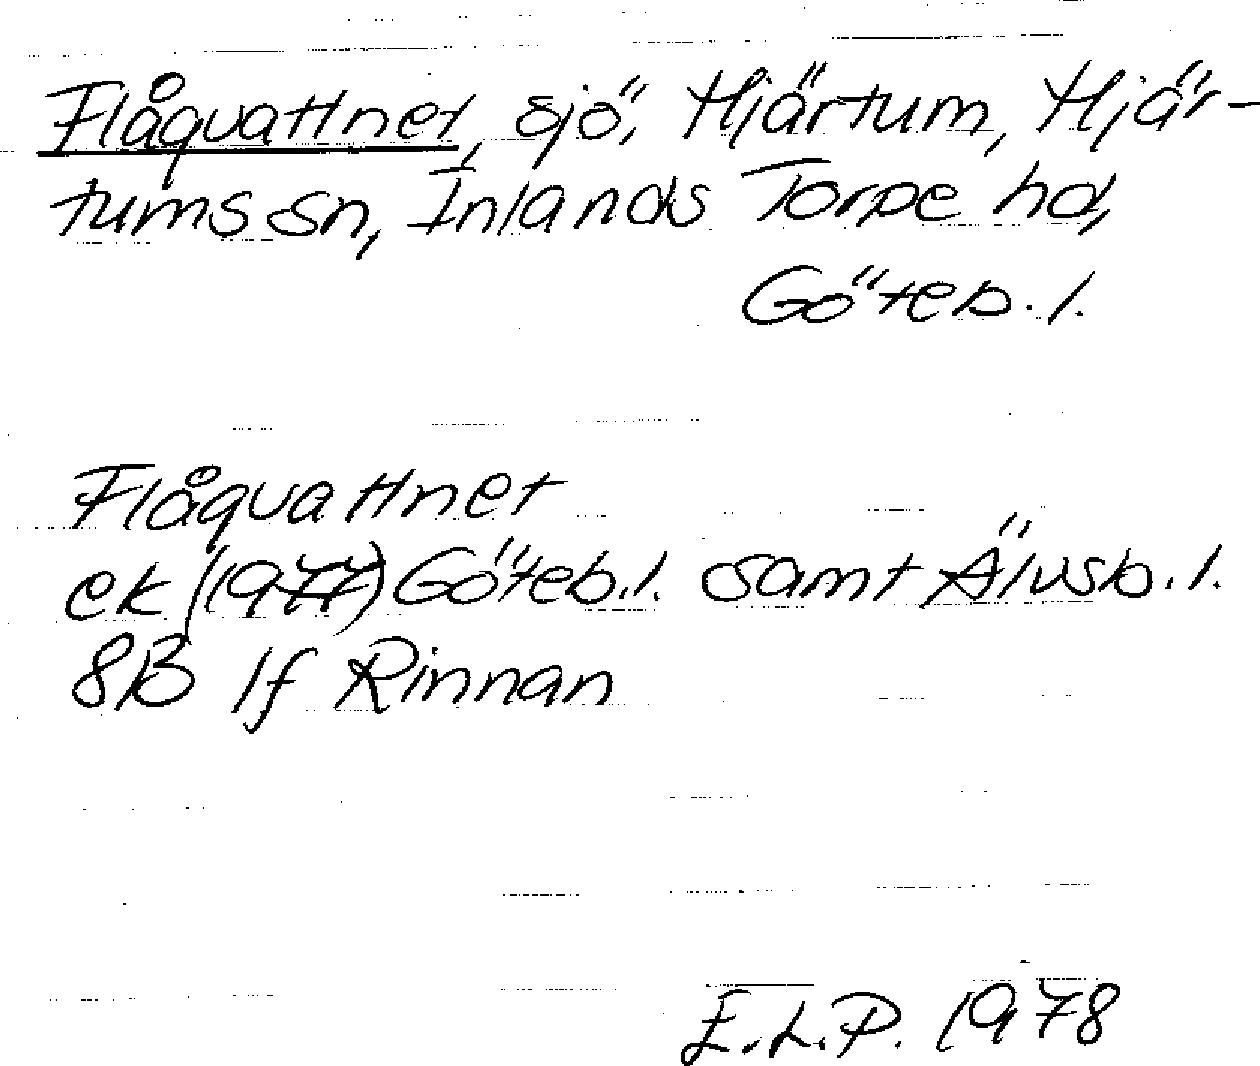 Flågvattnet, sjö, Hjärtum, Hjär-
tums sn, Inlands Torpe hd,
Göteb. l.
Flågvattnet
ek (1977) Göteb. l. samt Älvsb. l.
8B 1f Rinnan
E.L.P. 1978